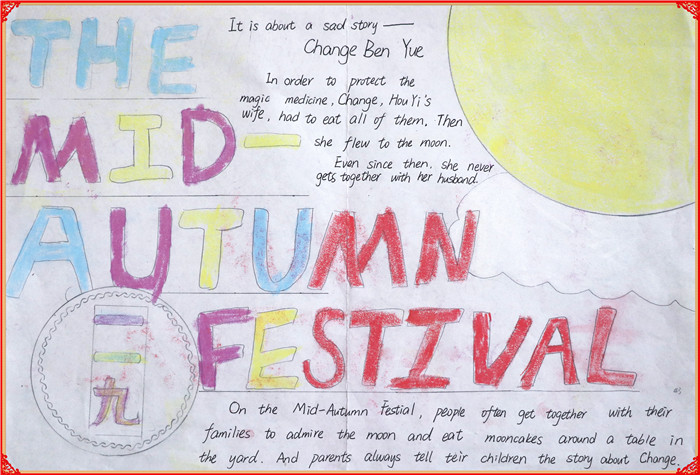 THE
MID-
AUTUMN
FESTIVAL
It is about a sad story —
Change Ben Yue
In order to protect the
magic medicine, Change, Hou Yi's
wife, had to eat all of them. Then
she flew to the moon.
Even since then, she never
gets together with her husband.
一
九
On the Mid-Autumn Festial, people often get together with their
families to admire the moon and eat mooncakes around a table in
the yard. And parents always tell teir children the story about Change.